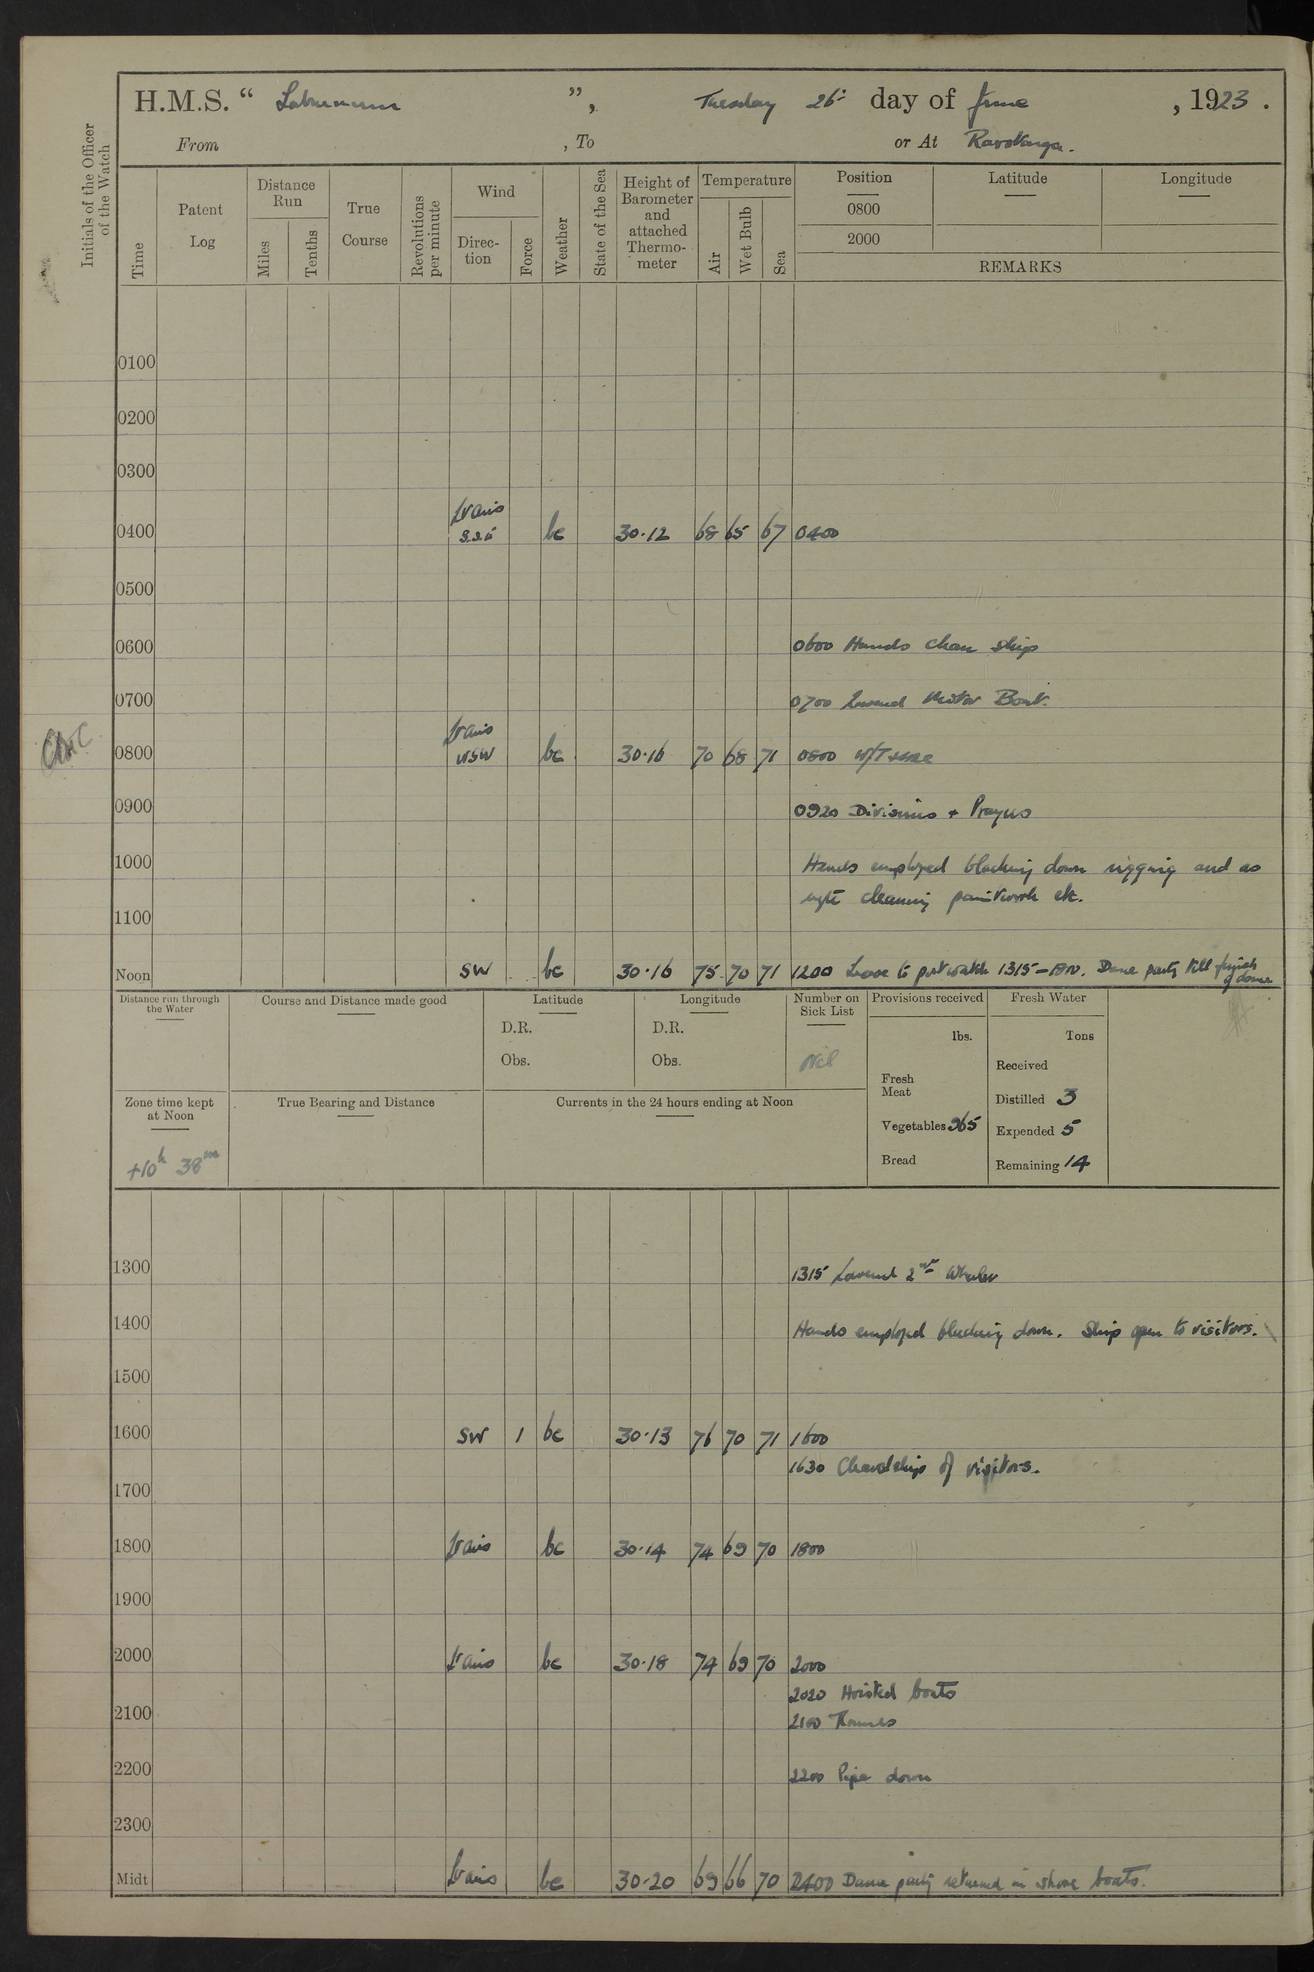 H.M.S. " Laburnum ", Tuesday 26th day of June , 1923 .
From , To or At Rarotonga.
Initials of the Officer of the Watch
Time
Patent Log
Distance Run
Miles
Tenths
True Course
Revolutions per minute
Wind
Direction
Force
Weather
State of the Sea
Height of Barometer and attached Thermometer
Temperature
Air
Wet Bulb
Sea
Position
0800
2000
Latitude
Longitude
REMARKS
0100
0200
0300
Vars
0400 S.S.E bc 30·12 68 65 67 0400
0500
0600 0600 Hands clean ship
0700 0700 Lowered Motor Boat.
Vars
0800 WSW bc 30·16 70 68 71 0800 W/T
0900 0920 Divisions + Prayers
1000 Hands employed blacking down rigging and as
reqte cleaning paintwork etc.
1100
Noon SW bc 30·16 75 70 71 1200 Leave to port watch 1315 – Dance party till finish
of dance
Distance run through the Water
Course and Distance made good
Latitude
D.R.
Obs.
Longitude
D.R.
Obs.
Number on Sick List
Nil
Provisions received
lbs.
Fresh Meat
Vegetables 365
Bread
Fresh Water
Tons
Received
Distilled 3
Expended 5
Remaining 14
Zone time kept at Noon
+10h 38m
True Bearing and Distance
Currents in the 24 hours ending at Noon
1300 1315 Lowered 2nd Whaler
1400 Hands employed blacking down. Ship open to visitors.
1500
1600 SW 1 bc 30·13 76 70 71 1600
1630 Cleared ship of visitors.
1700
1800 Vars bc 30·14 74 69 70 1800
1900
2000 Vars bc 30·18 74 69 70 2000
2020 Hoisted boats
2100 2100 Rounds
2200 2200 Pipe down
2300
Midt Vars bc 30·20 69 66 70 2400 Dance party returned in shore boats.